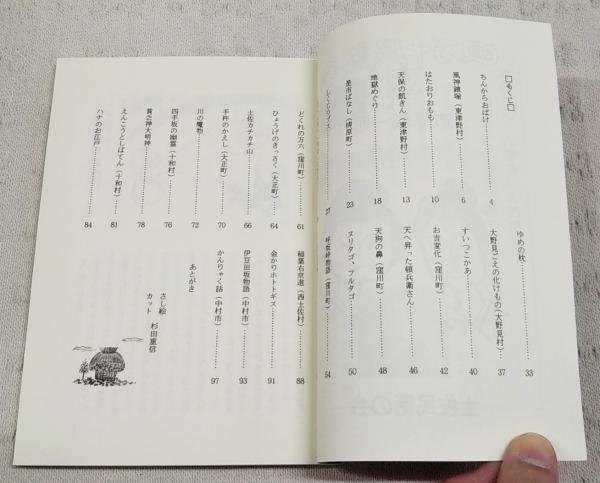 □もくじ□
ちんからおばけ……4
風神鎮塚（東津野村）……6
はたおりおもも……10
天保の飢きん（東津野村）……13
地獄めぐり……18
是市ばなし（梼原町）……23
27
ゆめの枕……33
大野見ごえの化けもの（大野見村）……37
すいつこかあ……40
お吉変化（窪川町）……42
天へ昇った頓兵衛さん……46
天狗の鼻（窪川町）……48
ヌリタゴ、フルタゴ……50
呼坂峠物語（窪川町）……54
どくれの万六（窪川町）……61
ひょうげのきっさく（大正町）……64
土佐カチカチ山……66
手杵のかえし（大正町）……70
川の魔物……72
四手坂の幽霊（十和村）……76
貧乏神大明神……78
えんこうとしばてん（十和村）……81
ハナのお江戸……84
稲葉右京道（西土佐村）……88
金かりホトトギス……91
伊豆田坂物語（中村市）……93
かんりゃく話（中村市）……97
あとがき
さし絵
カット　杉田重信
土佐民話の会